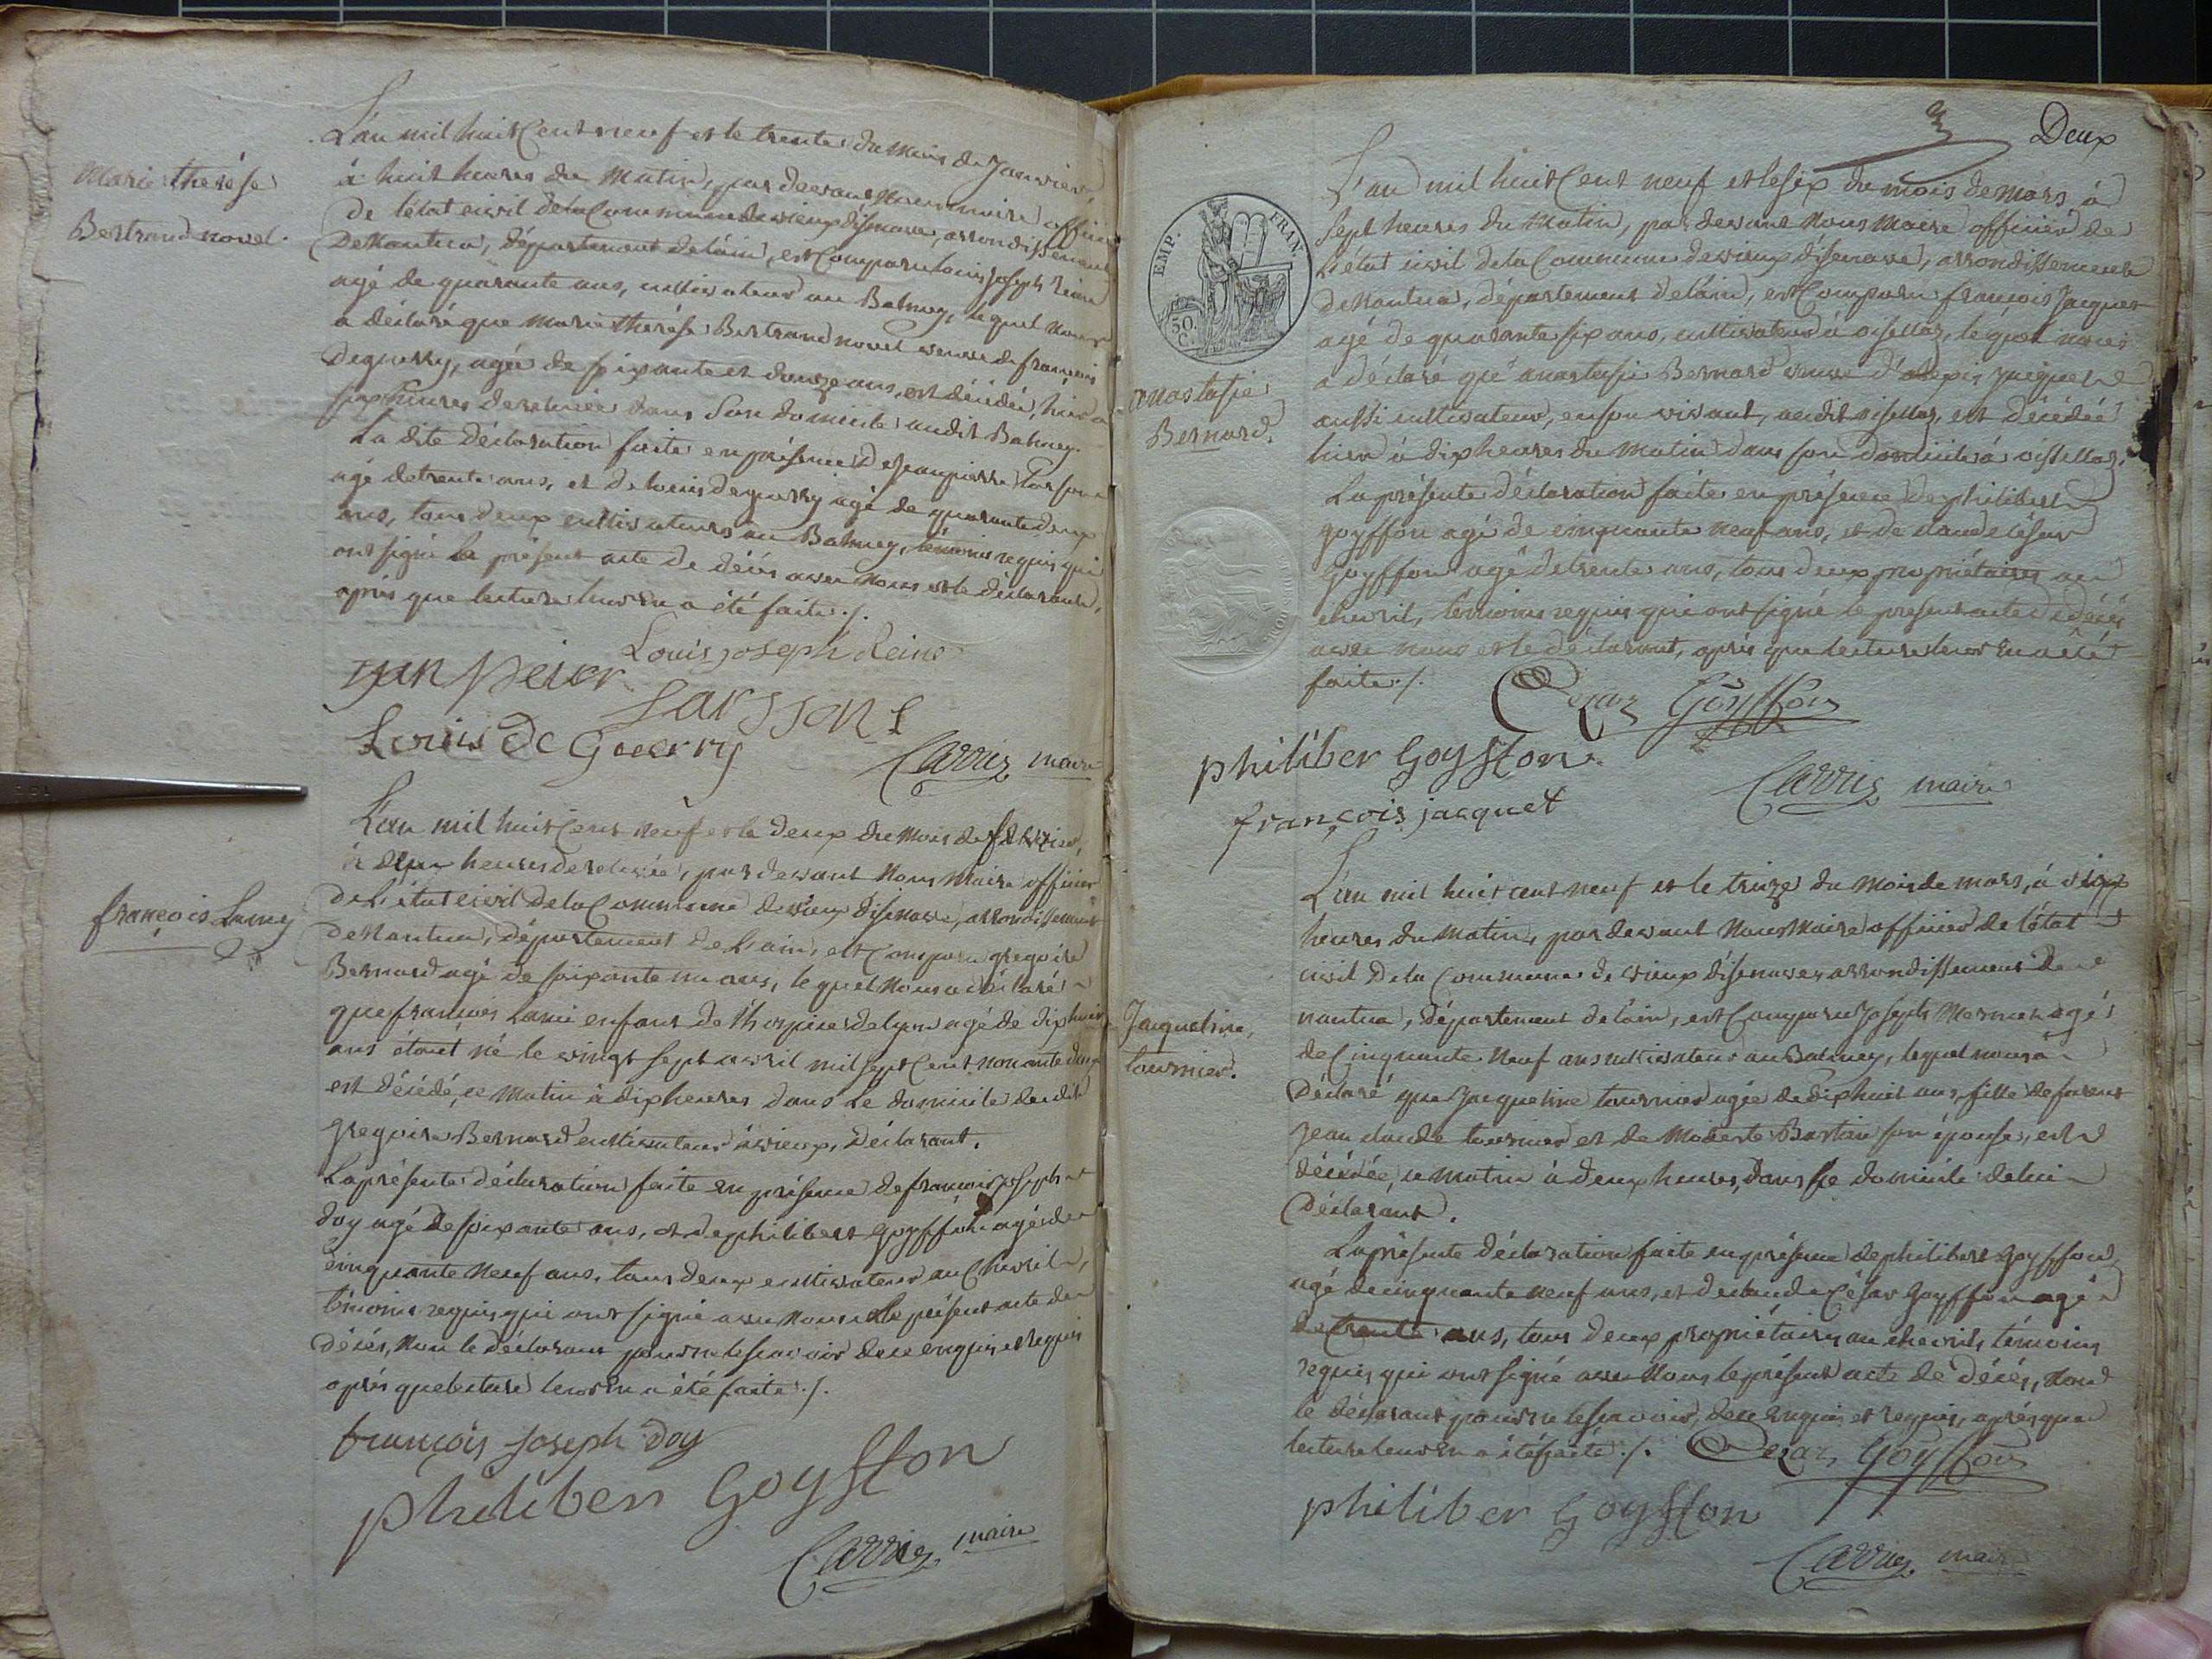 Marie thérése
Bertrand novel.
L'an mil huit Cent neuf et le trente du Mois de Janvier
à huit heures du Matin, par devant Nous maire officier
de l'état civil de la Commune de vieux d'isenave, arrondissement
de Nantua, département de l'ain, est Comparu Louis Joseph Reine
agé de quarante ans, cultivateur au Balmey, lequel Nous
a déclaré que Marie thérése Bertrand novel veuve de françois
Deguerry, agée de soixante et douze ans, est décédée, hier à
six heures de relevée dans Son domicile audit Balmey.
La dite Déclaration faite en présence de Jean pierre
agé de trente ans, et de Louis deguerry agé de quarante deux
ans, tous deux cultivateurs au Balmey, témoins requis qui
ont signé le présent acte de décés avec Nous et le déclarant,
aprés que lecture leur En a été faite ./.
Louis joseph Reine
Louis De Guerry
Carrier maire
françois Lamy
L'an mil huit Cent neuf et le deux du Mois de février,
heures de relevée, par devant Nous Maire officier
De L'état civil de la Commune de vieux d'isenave, arrondissement
de Nantua, département de L'ain, est Comparu gregoire
Bernard agé de soixante un ans, lequel Nous a déclaré
que françois Lami enfant de l'hospice de Lyon agé de dix huit
ans étant né le vingt sept avril mil sept Cent nonante
est décédé, ce Matin à dix heures dans Le domicile dudit
gregoire Bernard cultivateur à vieux, Déclarant.
La présente déclaration faite en présence de françois joseph
doy agé de soixante ans, et de philibert goyffon agé de
cinquante Neuf ans, tous deux cultivateurs au Chevril,
témoins requis qui ont signé avec Nous le présent acte de
décés, Non le déclarant pour ne le scavoir de ce enquis et requis
aprés que lecture leur En a été faite ./.
françois joseph doy
philiber Goyffon
Carrier maire
Deux
EMP. FRAN.
50. C.
anastasie
Bernard.
L'an mil huit Cent neuf et le six du mois de mars, à
sept heures du Matin, par devant Nous Maire officier de
L'état civil de la Commune de vieux d'isenave, arrondissement
de Nantua, département de l'ain, est Comparu françois Jacquet
agé de quarante six ans, cultivateur à oisellaz, lequel nous
a déclaré qu'anastasie Bernard veuve d'alexis jacquet
aussi cultivateur, en son vivant, audit oisellaz, est décédée
hier à dix heures du Matin dans son domicile à oisellaz.
La présente déclaration faite en présence de philibert
goyffon agé de cinquante neuf ans, et de claude César
goyffon agé de trente ans, tous deux propriétaires au
chevril, témoins requis qui ont signé le present acte de décés
avec nous et le déclarant, aprés que lecture leur En a été
faite ./.
Cezar Goyffon
philiber Goyffon
Carrier maire
françois jacquet
Jacqueline
tournier.
L'an mil huit cent neuf et le treize du Mois de mars, à
heures du Matin, par devant Nous Maire officier de l'état
civil de la Commune de vieux d'isenave, arrondissement de
nantua, département de l'ain, est Comparu Joseph Mermet agé
de Cinquante Neuf ans cultivateur au Balmey, lequel nous a
Déclaré que Jacqueline tournier agée de dix huit ans, fille de feu
Jean claude tournier et de Modeste son épouse, est
décédée, ce matin à deux heures, dans le domicile de lui
Déclarant.
La présente déclaration faite en présence de philibert Goyffon
agé de cinquante neuf ans, et de claude César Goyffon agé
de trente ans, tous deux propriétaires au chevril, témoins
requis qui ont signé avec Nous le présent acte de décés, Non
le déclarant pour ne le scavoir, de ce Enquis et requis, aprés que
lecture leur En a été faite ./. Cezar Goyffon
philiber Goyffon
Carrier maire